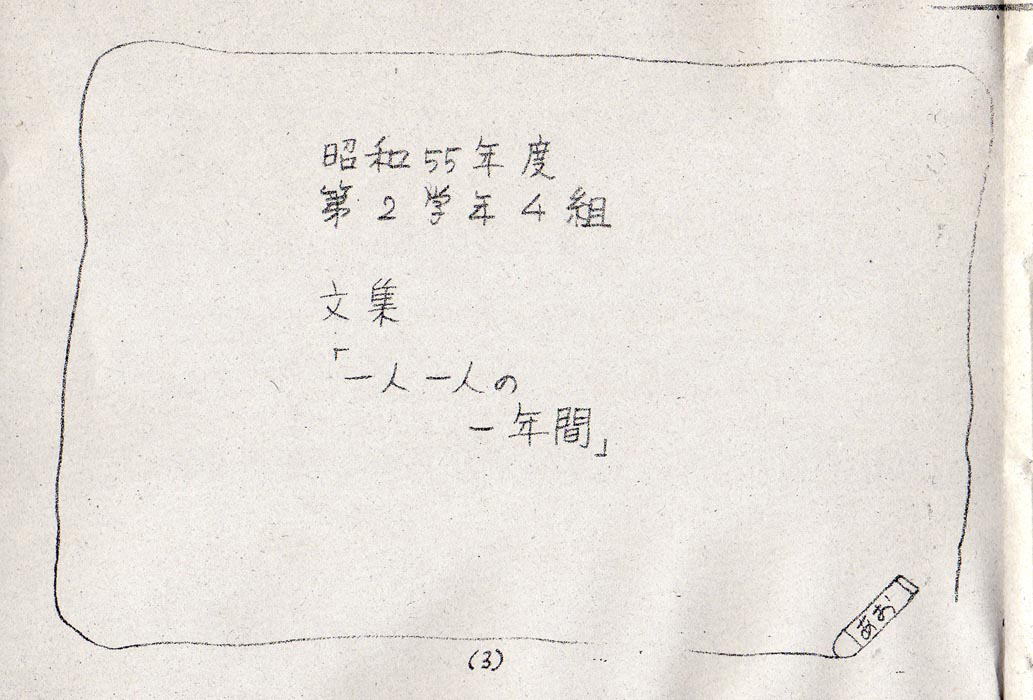 昭和55年度
第2学年4組
文集
「一人一人の
一年間」
あお
(3)